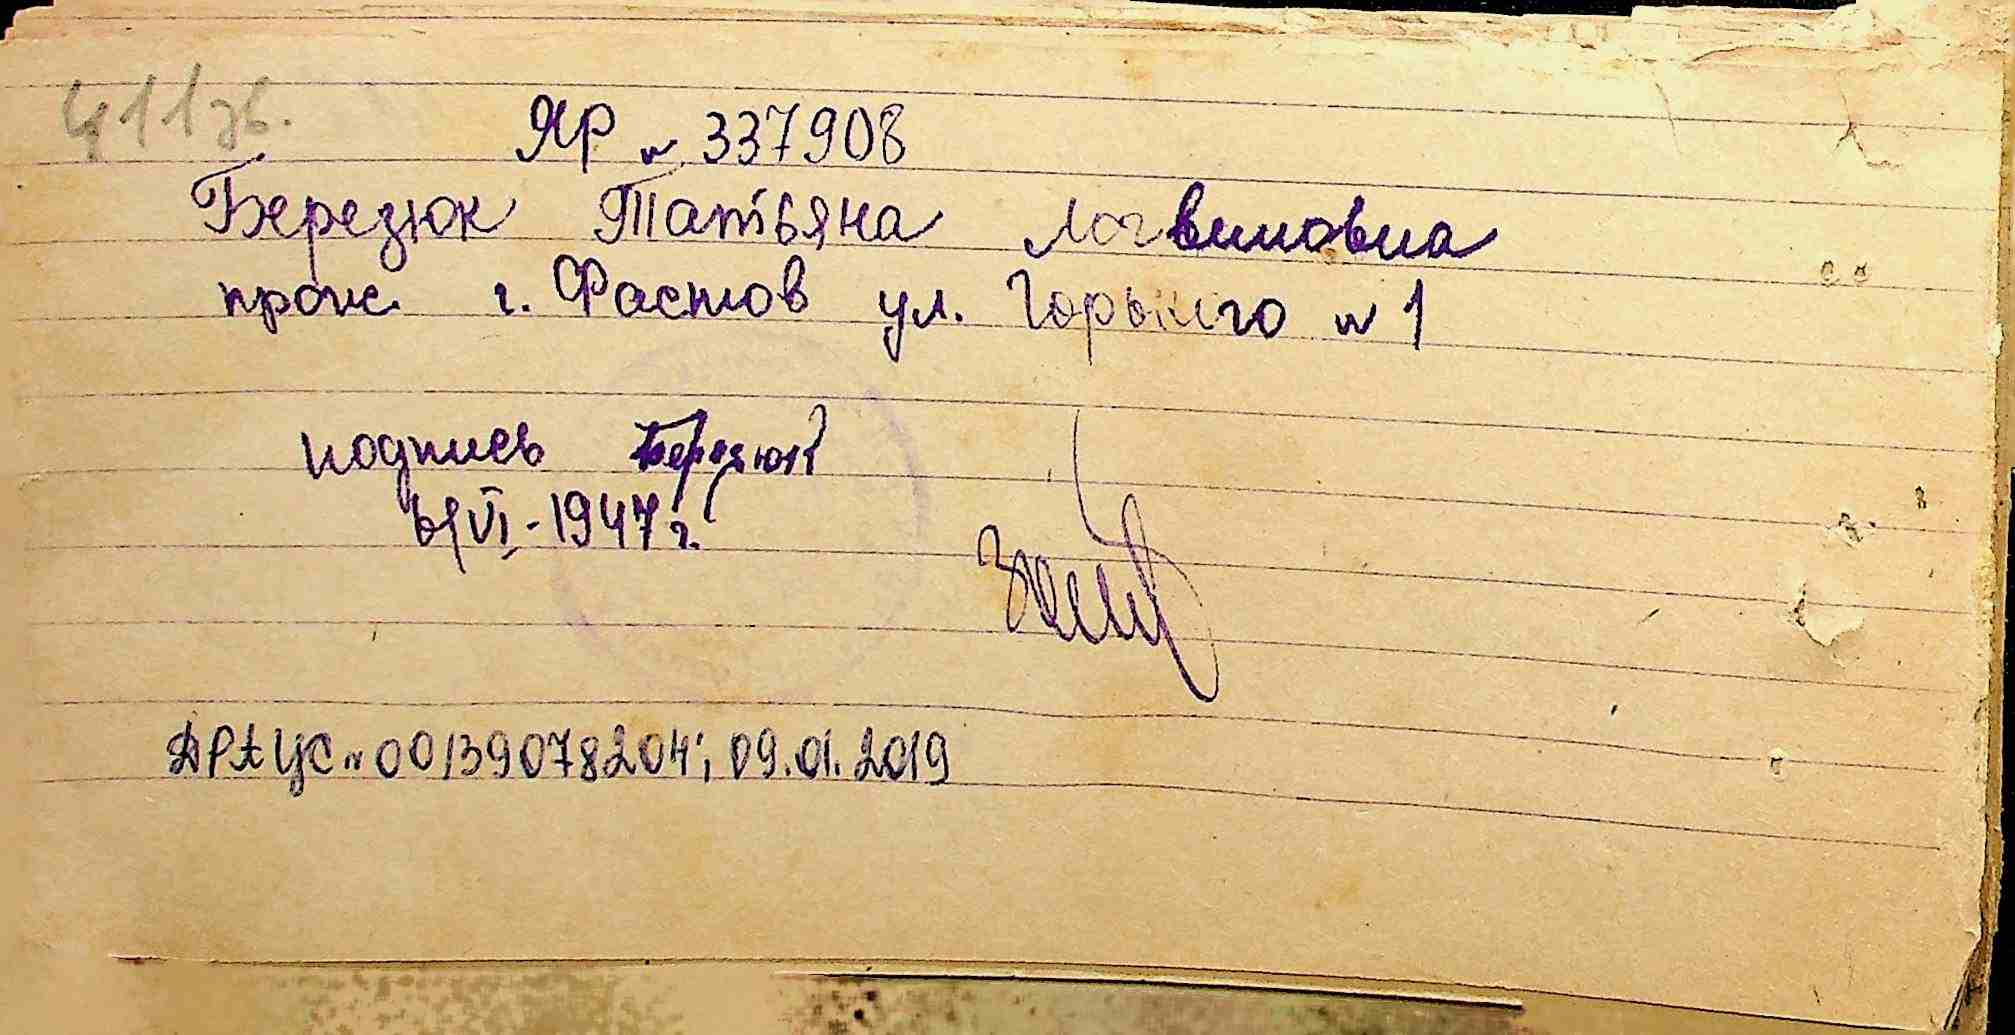 411зв.
ЯР № 337908
Березюк Татьяна Логвиновна
прож г. Фастов ул. Горького № 1
подпись Березюк
6/VI-1947 г.
ДРАЦС № 00139078204; 09.01.2019